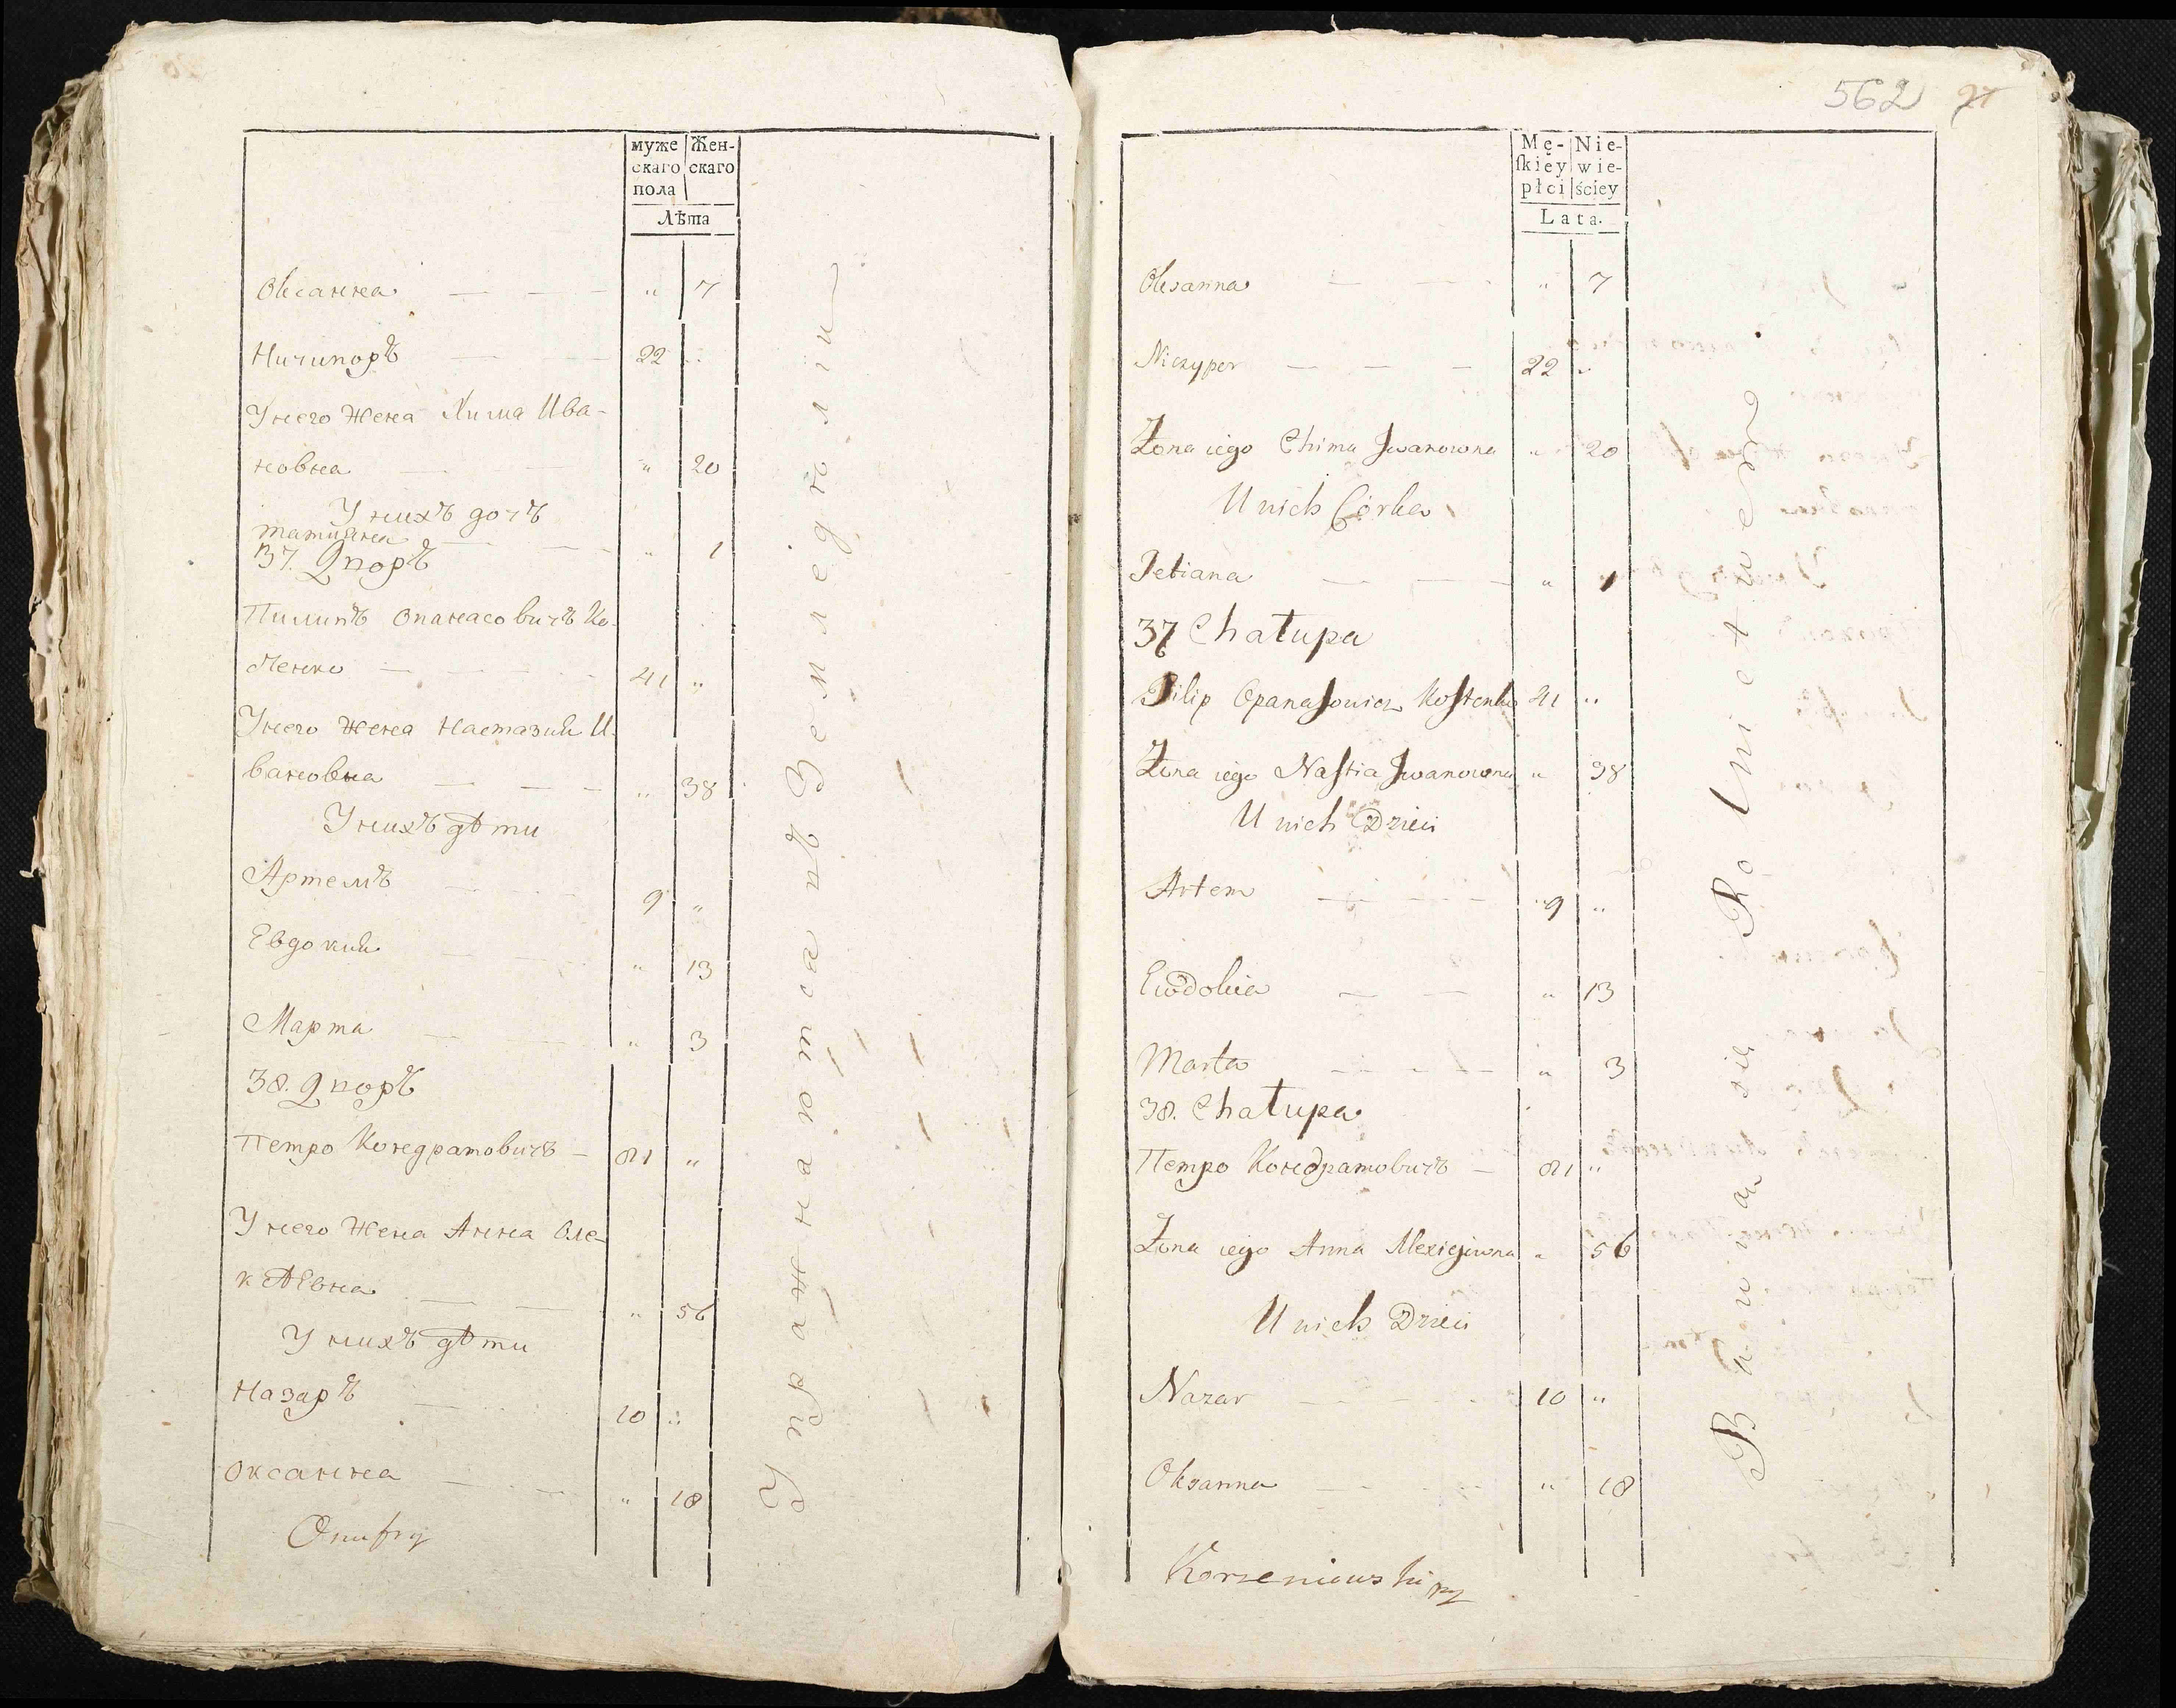 муже
скаго
пола
Жен-
скаго
Лѣта
Оксанна — — — " 7
Ничипоръ — — 22 "
У него жена Хима Ива-
новна — — " 20
У нихъ дочъ
Татияна — — " 1
37. Двор̾ъ
Пилипъ Опанасовичъ Ко-
стенко — — — 41 "
У него жена Настазия И-
вановна — — — " 38
У нихъ дѣти
Артемъ — — 9 "
Евдокия — — — " 13
Марта — — " 3
38. Дворъ
Петро Кондратовичъ — 81 "
У него жена Анна Оле-
ксѣевна — — " 56
У нихъ дѣти
Назаръ — — 10 "
Оксанна — — — " 18
Onufry
Упражнаются въ Земледѣлiи
562 27
Mę-
ſkiey
płci
Nie-
wie-
ściey
Lata.
Oksanna — — " 7
Niczyper — — — 22 "
Żona iego Chima Jwanowna " 20
U nich Córka
Tetiana — — " 1
37 Chałupa
Pilip Opanaſowicz Koſtenko 41 "
Żona iego Naſtia Jwanowna " 38
U nich Dzieci
Artem — — 9 "
Ewdokia — — " 13
Marta — — " 3
38. Chałupa
Петро Кондратовичъ — 81 "
Żona iego Anna Alexiejewna " 56
U nich Dzieci
Nazar — — 10 "
Oksanna — — " 18
Korzeniowski
Bawią się Rolnictwem